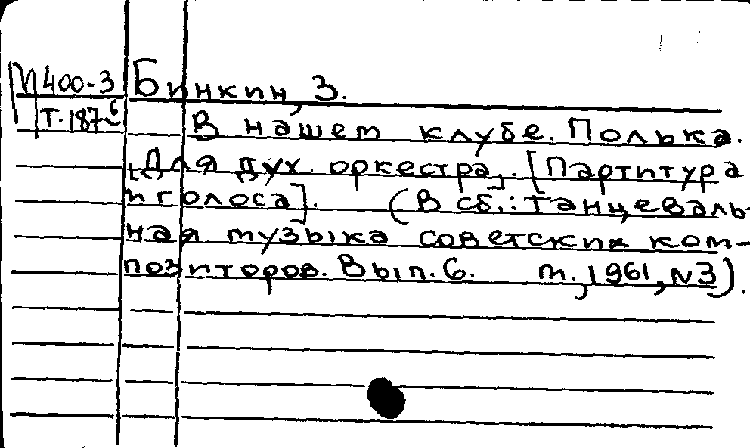 М 400-3 Бинкин, З.
Т.187б В нашем клубе. Полька.
[Для дух. оркестра]. [Партитура
и голоса]. (В сб.: Танцеваль-
ная музыка советских ком-
позиторов. Вып. 6. М., 1961, №3).